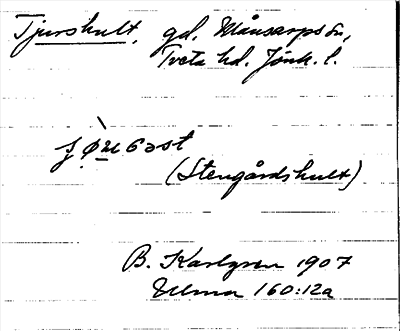 Tjurshult, gd. Månsarps sn,
Tveta hd. Jönk. l.
(Stengårdshult)
B. Karlgren 1907
Ullma 160:12a